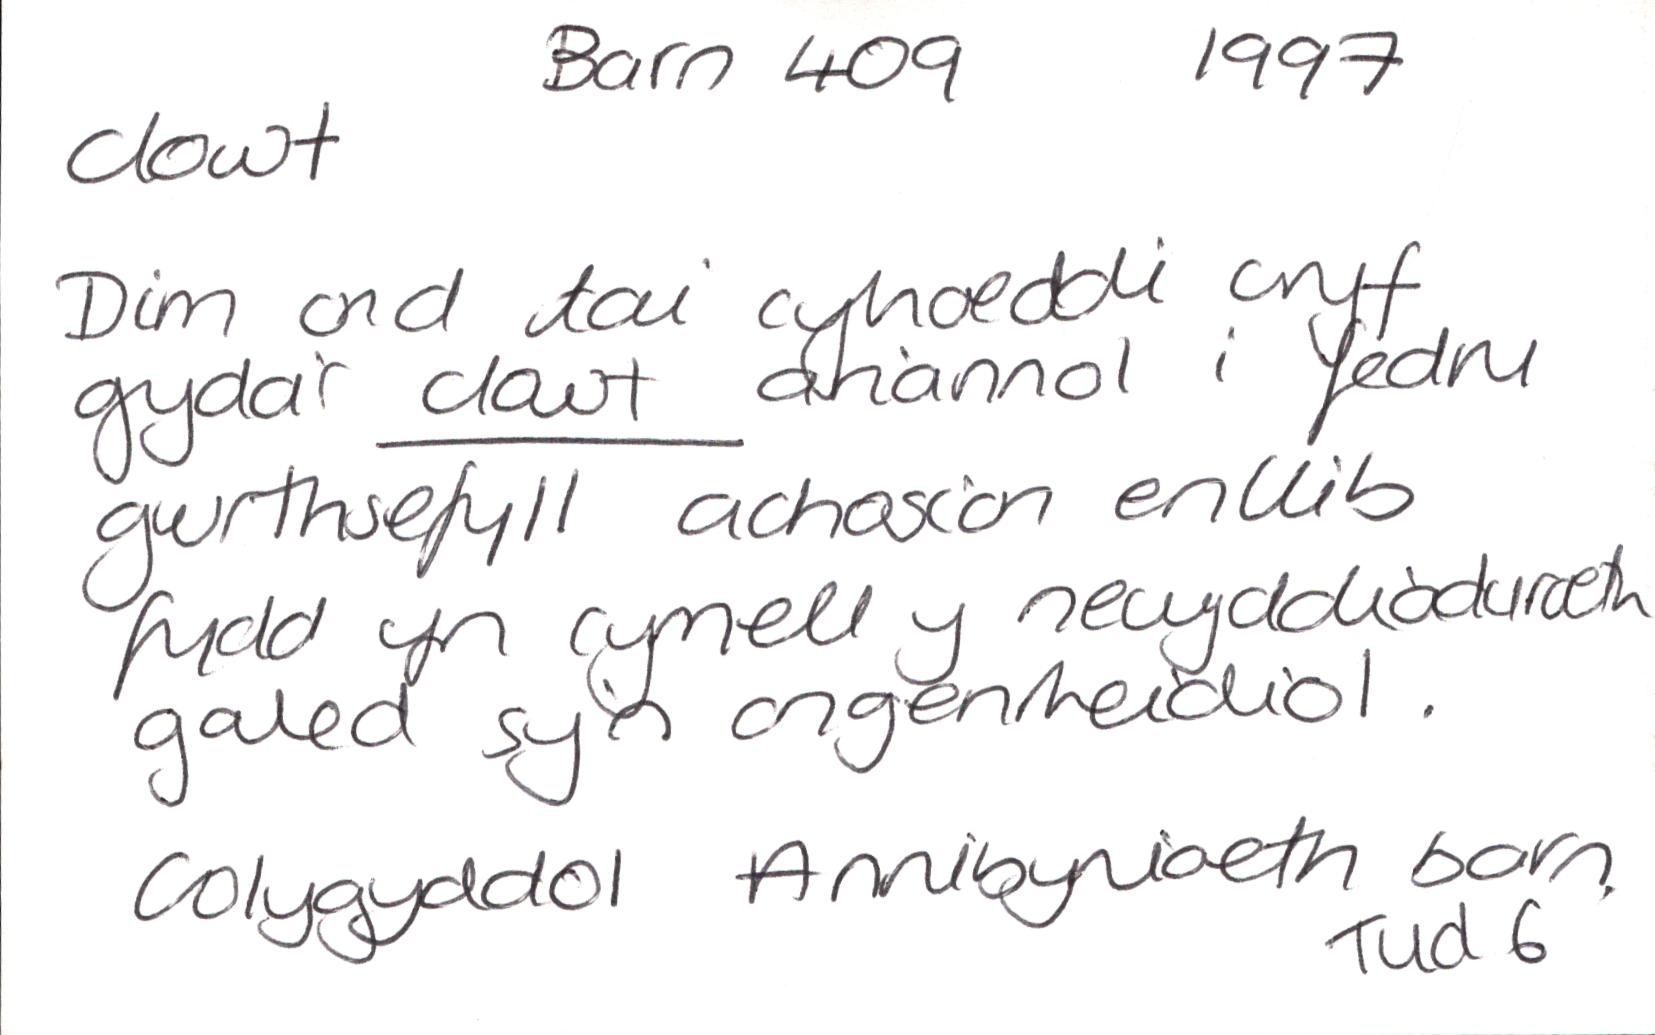 Barn 409 1997
clowt
Dim ond tai cyhoeddi cryf
gyda'r clowt ariannol i fedru
gwrthsefyll achosion enllib
fydd yn cymell y newyddiaduraeth
galed sy'n angenrheidiol.
Golygyddol Annibyniaeth barn,
Tud 6